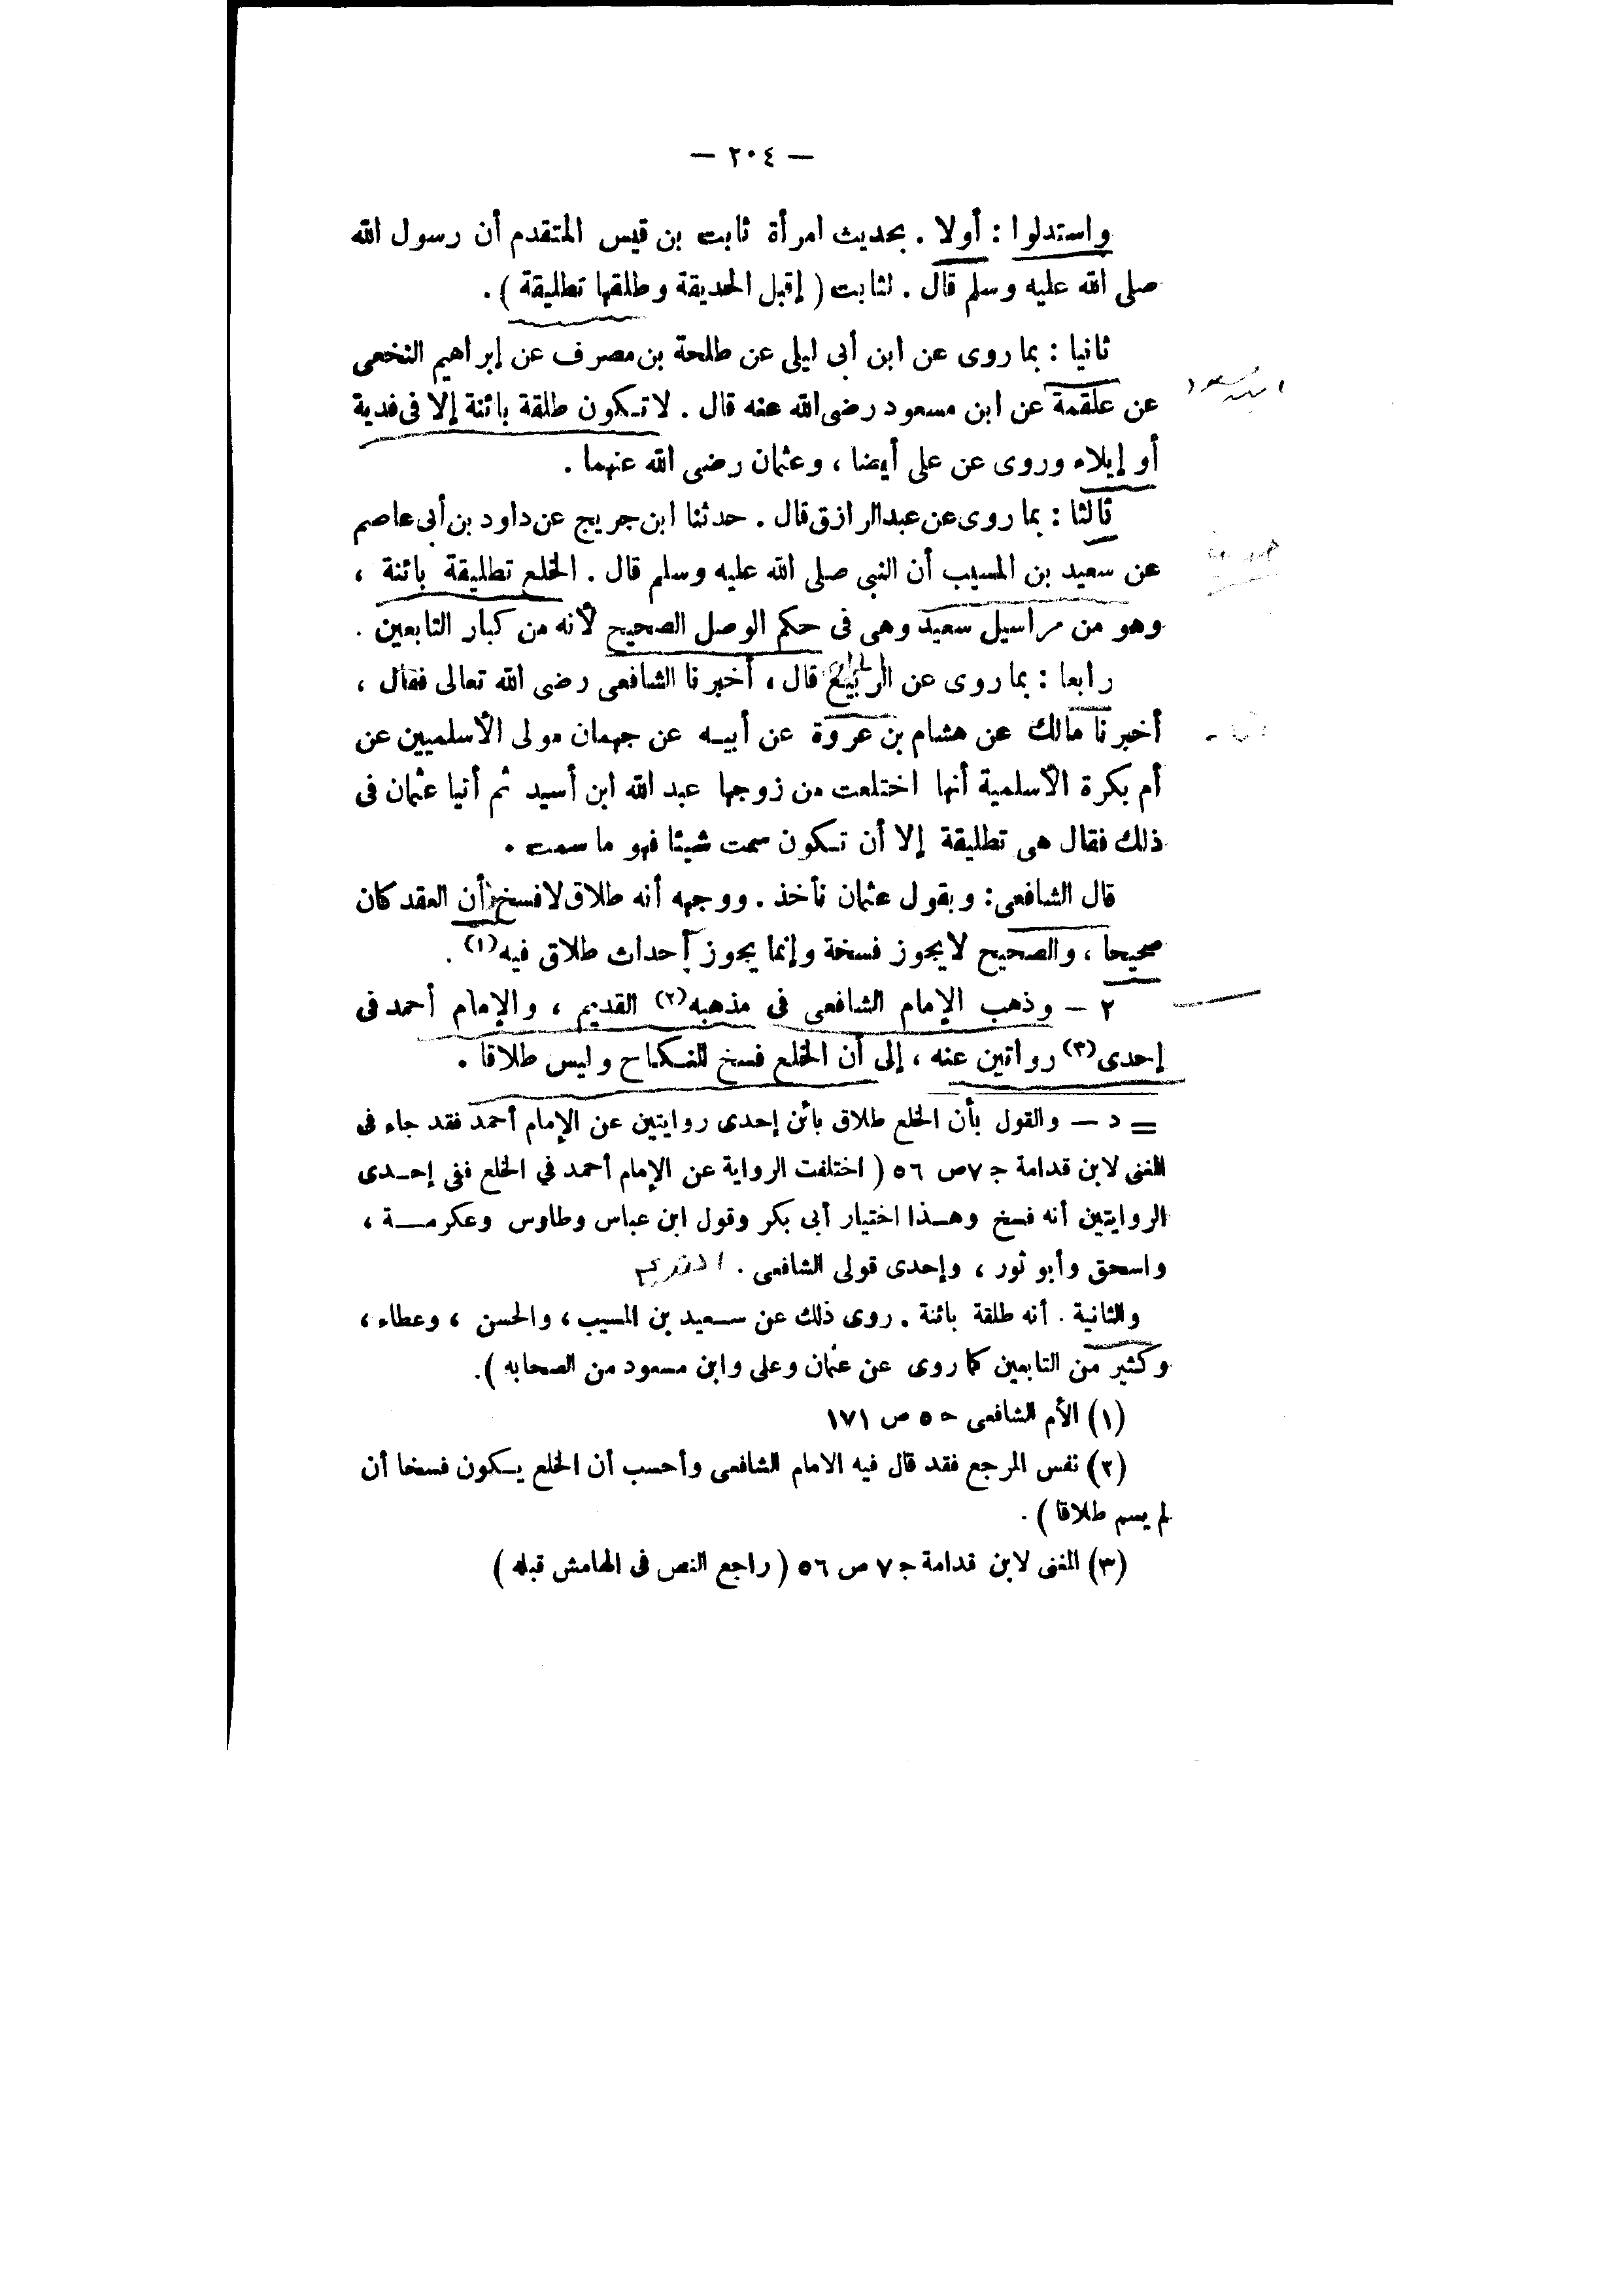 — ٢٠٤ —
واستدلوا : أولا . بحديث امرأة ثابت بن قيس المتقدم أن رسول الله
صلى الله عليه وسلم قال . لثابت ( إقبل الحديقة وطلقها تطليقة ) .
ثانيا : بما روى عن ابن أبى ليلى عن طلحة بن مصرف عن إبراهيم النخعى
عن علقمة عن ابن مسعود رضى الله عنه قال . لا تكون طلقة بائنة إلا فى فدية
أو إيلاء وروى عن على أيضا ، وعثمان رضى الله عنهما .
ثالثا : بما روى عن عبد الرازق قال . حدثنا ابن جريج عن داود بن أبى عاصم
عن سعيد بن المسيب أن النبى صلى الله عليه وسلم قال . الخلع تطليقة بائنة ،
وهو من مراسيل سعيد وهى فى حكم الوصل الصحيح لأنه من كبار التابعين .
رابعا : بما روى عن الربيع قال ، أخبرنا الشافعى رضى الله تعالى فقال ،
أخبرنا مالك عن هشام بن عروة عن أبيه عن جهمان مولى الأسلميين عن
أم بكرة الأسلمية أنها اختلعت من زوجها عبد الله ابن أسيد ثم أنيا عثمان فى
ذلك فقال هى تطليقة إلا أن تكون سمت شيئا فهو ما سمت .
قال الشافعى : وبقول عثمان نأخذ . ووجهه أنه طلاق لا فسخ أن العقد كان
صحيحا ، والصحيح لا يجوز فسخة وإنما يجوز إحداث طلاق فيه (١) .
٢ — وذهب الإمام الشافعى فى مذهبه (٢) القديم ، والإمام أحمد فى
إحدى (٣) رواتين عنه ، إلى أن الخلع فسخ للنكاح وليس طلاقا .
= د — والقول بأن الخلع طلاق بائن إحدى روايتين عن الإمام أحمد فقد جاء فى
المغنى لابن قدامة ج ٧ ص ٥٦ ( اختلفت الرواية عن الإمام أحمد في الخلع ففى إحدى
الروايتين أنه فسخ وهذا اختيار أبى بكر وقول ابن عباس وطاوس وعكرمة ،
واسحق وأبو ثور ، وإحدى قولى الشافعى .
والثانية . أنه طلقة بائنة . روى ذلك عن سعيد بن المسيب ، والحسن ، وعطاء ،
وكثير من التابعين كما روى عن عثمان وعلى وابن مسعود من الصحابه ) .
(١) الأم الشافعى ح ٥ ص ١٧١
(٢) نفس المرجع فقد قال فيه الامام الشافعى وأحسب أن الخلع يكون فسخا أن
لم يسم طلاقا ) .
(٣) المغنى لابن قدامة ج ٧ ص ٥٦ ( راجع النص فى الهامش قبله )